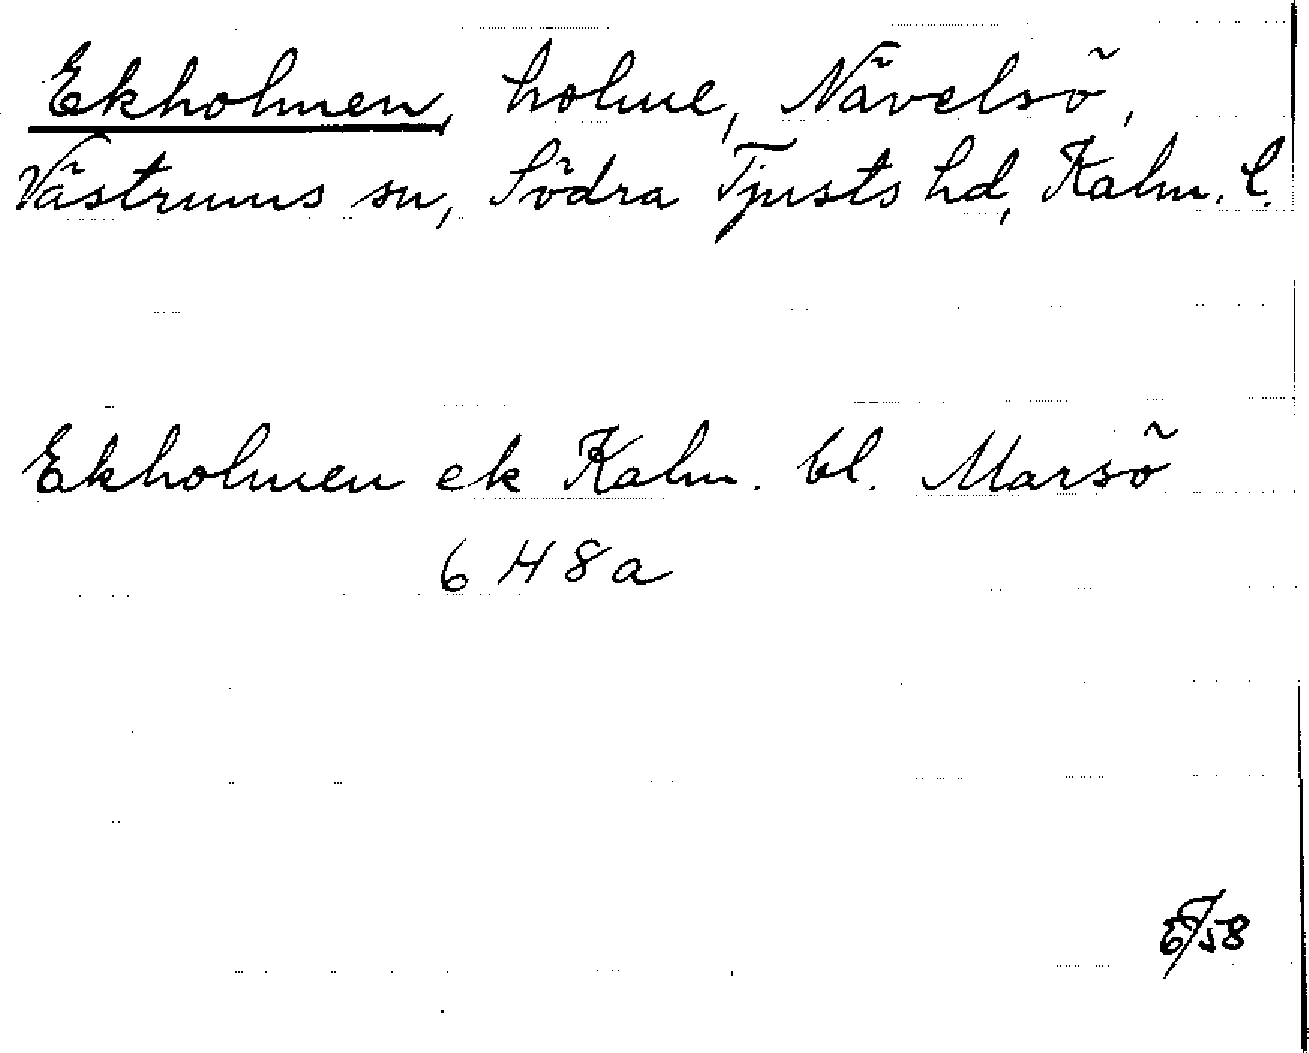 Ekholmen, holme, Nävelsö,
Västrums sn, Södra Tjusts hd, Kalm. l.
Ekholmen ek Kalm. bl. Marsö
6 H 8 a